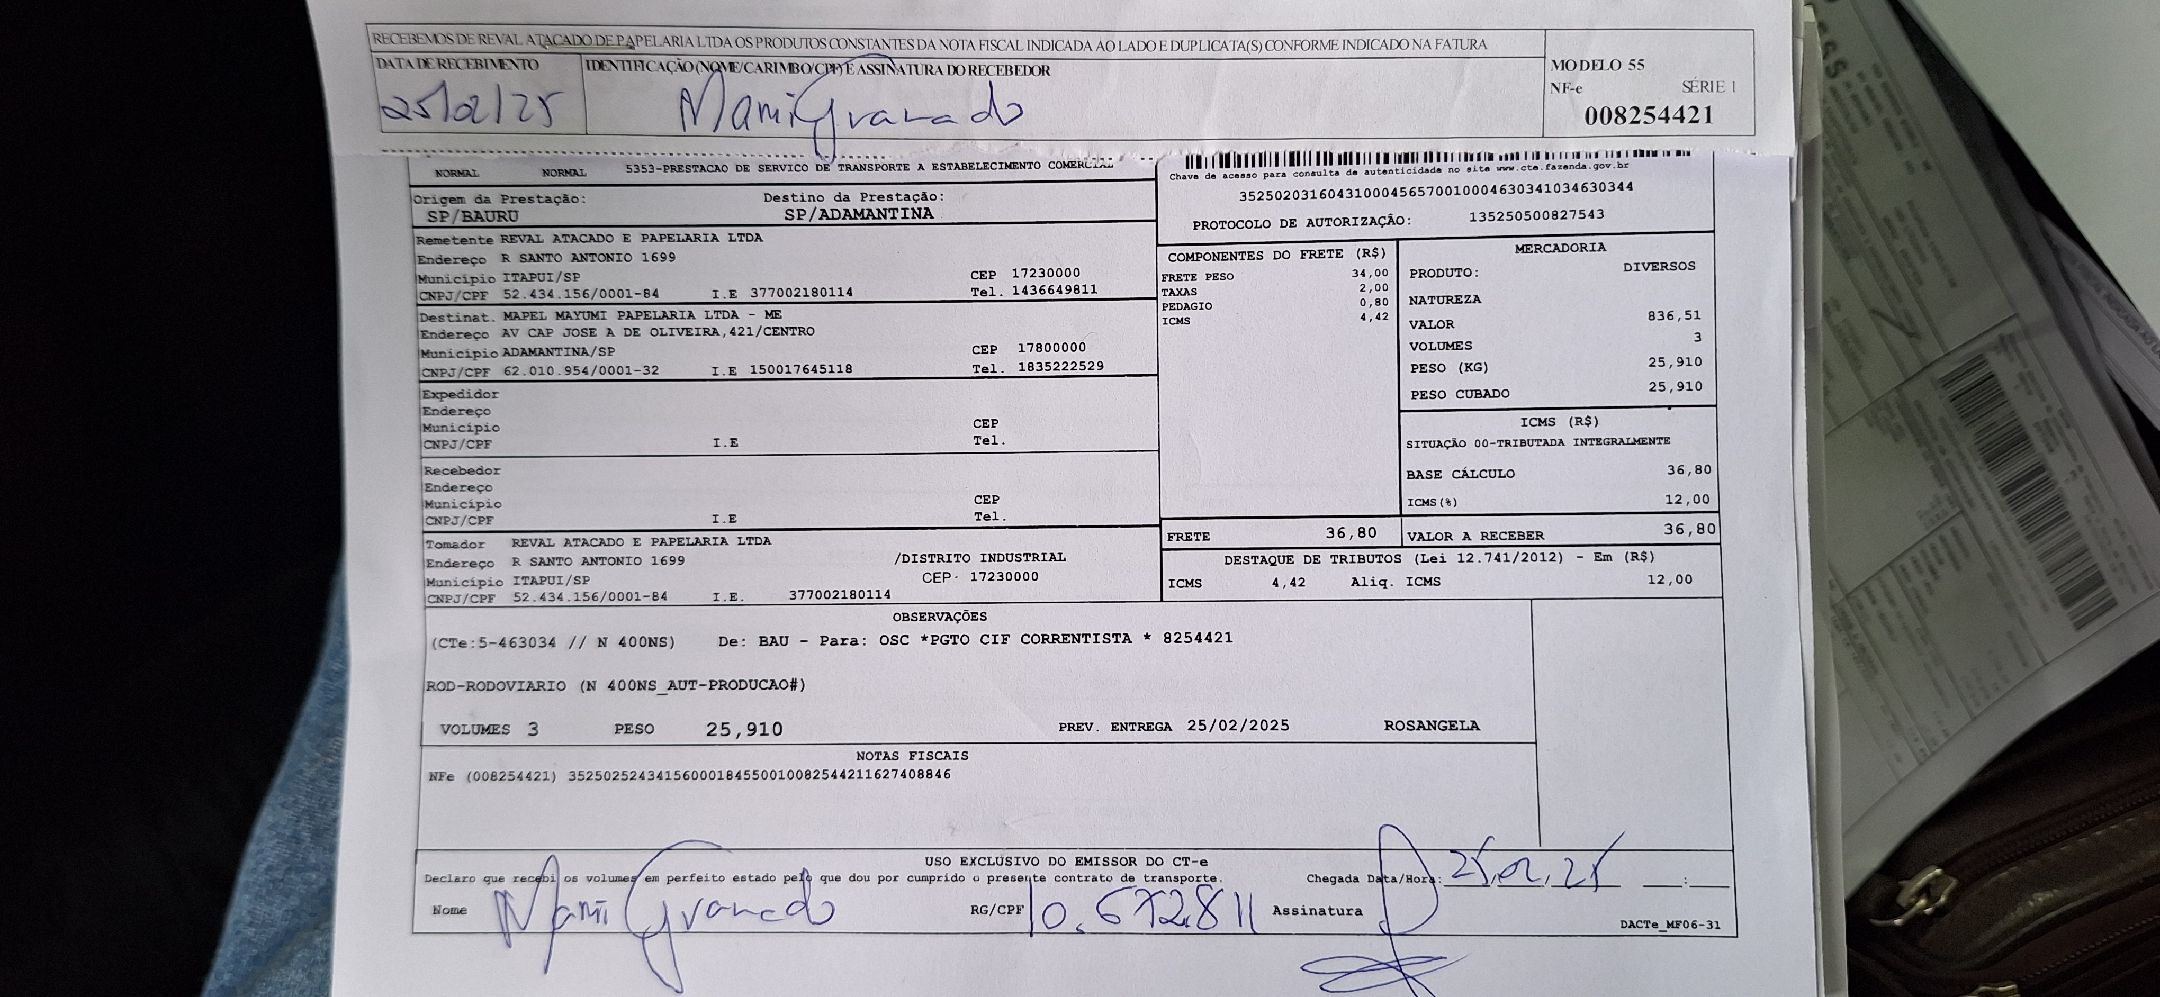 RECEBEMOS DE REVAL ATACADO DE PAPELARIA LTDA OS PRODUTOS CONSTANTES DA NOTA FISCAL INDICADA AO LADO E DUPLICATA(S) CONFORME INDICADO NA FATURA
DATA DE RECEBIMENTO IDENTIFICAÇÃO (NOME/CARIMBO/CPF) E ASSINATURA DO RECEBEDOR
25/02/25 Mami Granado
MODELO 55
NF-e SÉRIE 1
008254421
NORMAL NORMAL 5353-PRESTACAO DE SERVICO DE TRANSPORTE A ESTABELECIMENTO COMERCIAL
Chave de acesso para consulta de autenticidade no site www.cte.fazenda.gov.br
35250203160431000456570010004630341034630344
PROTOCOLO DE AUTORIZAÇÃO: 135250500827543
Origem da Prestação: Destino da Prestação:
SP/BAURU SP/ADAMANTINA
Remetente REVAL ATACADO E PAPELARIA LTDA
Endereço R SANTO ANTONIO 1699
Município ITAPUI/SP CEP 17230000
CNPJ/CPF 52.434.156/0001-84 I.E 377002180114 Tel. 1436649811
Destinat. MAPEL MAYUMI PAPELARIA LTDA - ME
Endereço AV CAP JOSE A DE OLIVEIRA,421/CENTRO
Município ADAMANTINA/SP CEP 17800000
CNPJ/CPF 62.010.954/0001-32 I.E 150017645118 Tel. 1835222529
Expedidor
Endereço
Município CEP
CNPJ/CPF I.E Tel.
Recebedor
Endereço
Município CEP
CNPJ/CPF I.E Tel.
Tomador REVAL ATACADO E PAPELARIA LTDA
Endereço R SANTO ANTONIO 1699 /DISTRITO INDUSTRIAL
Município ITAPUI/SP CEP 17230000
CNPJ/CPF 52.434.156/0001-84 I.E. 377002180114
COMPONENTES DO FRETE (R$)
FRETE PESO 34,00
TAXAS 2,00
PEDAGIO 0,80
ICMS 4,42
MERCADORIA
PRODUTO: DIVERSOS
NATUREZA
VALOR 836,51
VOLUMES 3
PESO (KG) 25,910
PESO CUBADO 25,910
ICMS (R$)
SITUAÇÃO 00-TRIBUTADA INTEGRALMENTE
BASE CÁLCULO 36,80
ICMS(%) 12,00
FRETE 36,80 VALOR A RECEBER 36,80
DESTAQUE DE TRIBUTOS (Lei 12.741/2012) - Em (R$)
ICMS 4,42 Aliq. ICMS 12,00
OBSERVAÇÕES
(CTe:5-463034 // N 400NS) De: BAU - Para: OSC *PGTO CIF CORRENTISTA * 8254421
ROD-RODOVIARIO (N 400NS_AUT-PRODUCAO#)
VOLUMES 3 PESO 25,910 PREV. ENTREGA 25/02/2025 ROSANGELA
NOTAS FISCAIS
NFe (008254421) 35250252434156000184550010082544211627408846
USO EXCLUSIVO DO EMISSOR DO CT-e
Declaro que recebi os volumes em perfeito estado pelo que dou por cumprido o presente contrato de transporte. Chegada Data/Hora: 25.02.25 __:__
Nome Mami Granado RG/CPF 10.672.811 Assinatura
DACTe_MF06-31